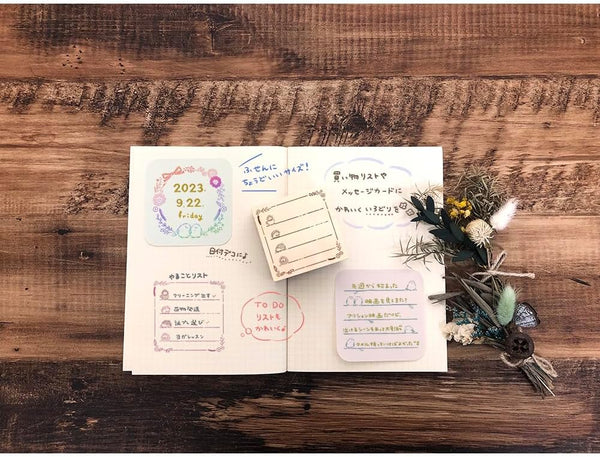 2023.
9.22.
friday
ふせんに
ちょうどいいサイズ!
日付デコに♪
やることリスト
クリーニング出す
荷物発送
ヨガレッスン
TO DO
リストも
かわいく♪
買い物リストや
メッセージカードに
かわいくいろどりを
映画を見ました!
アクション映画だけど、